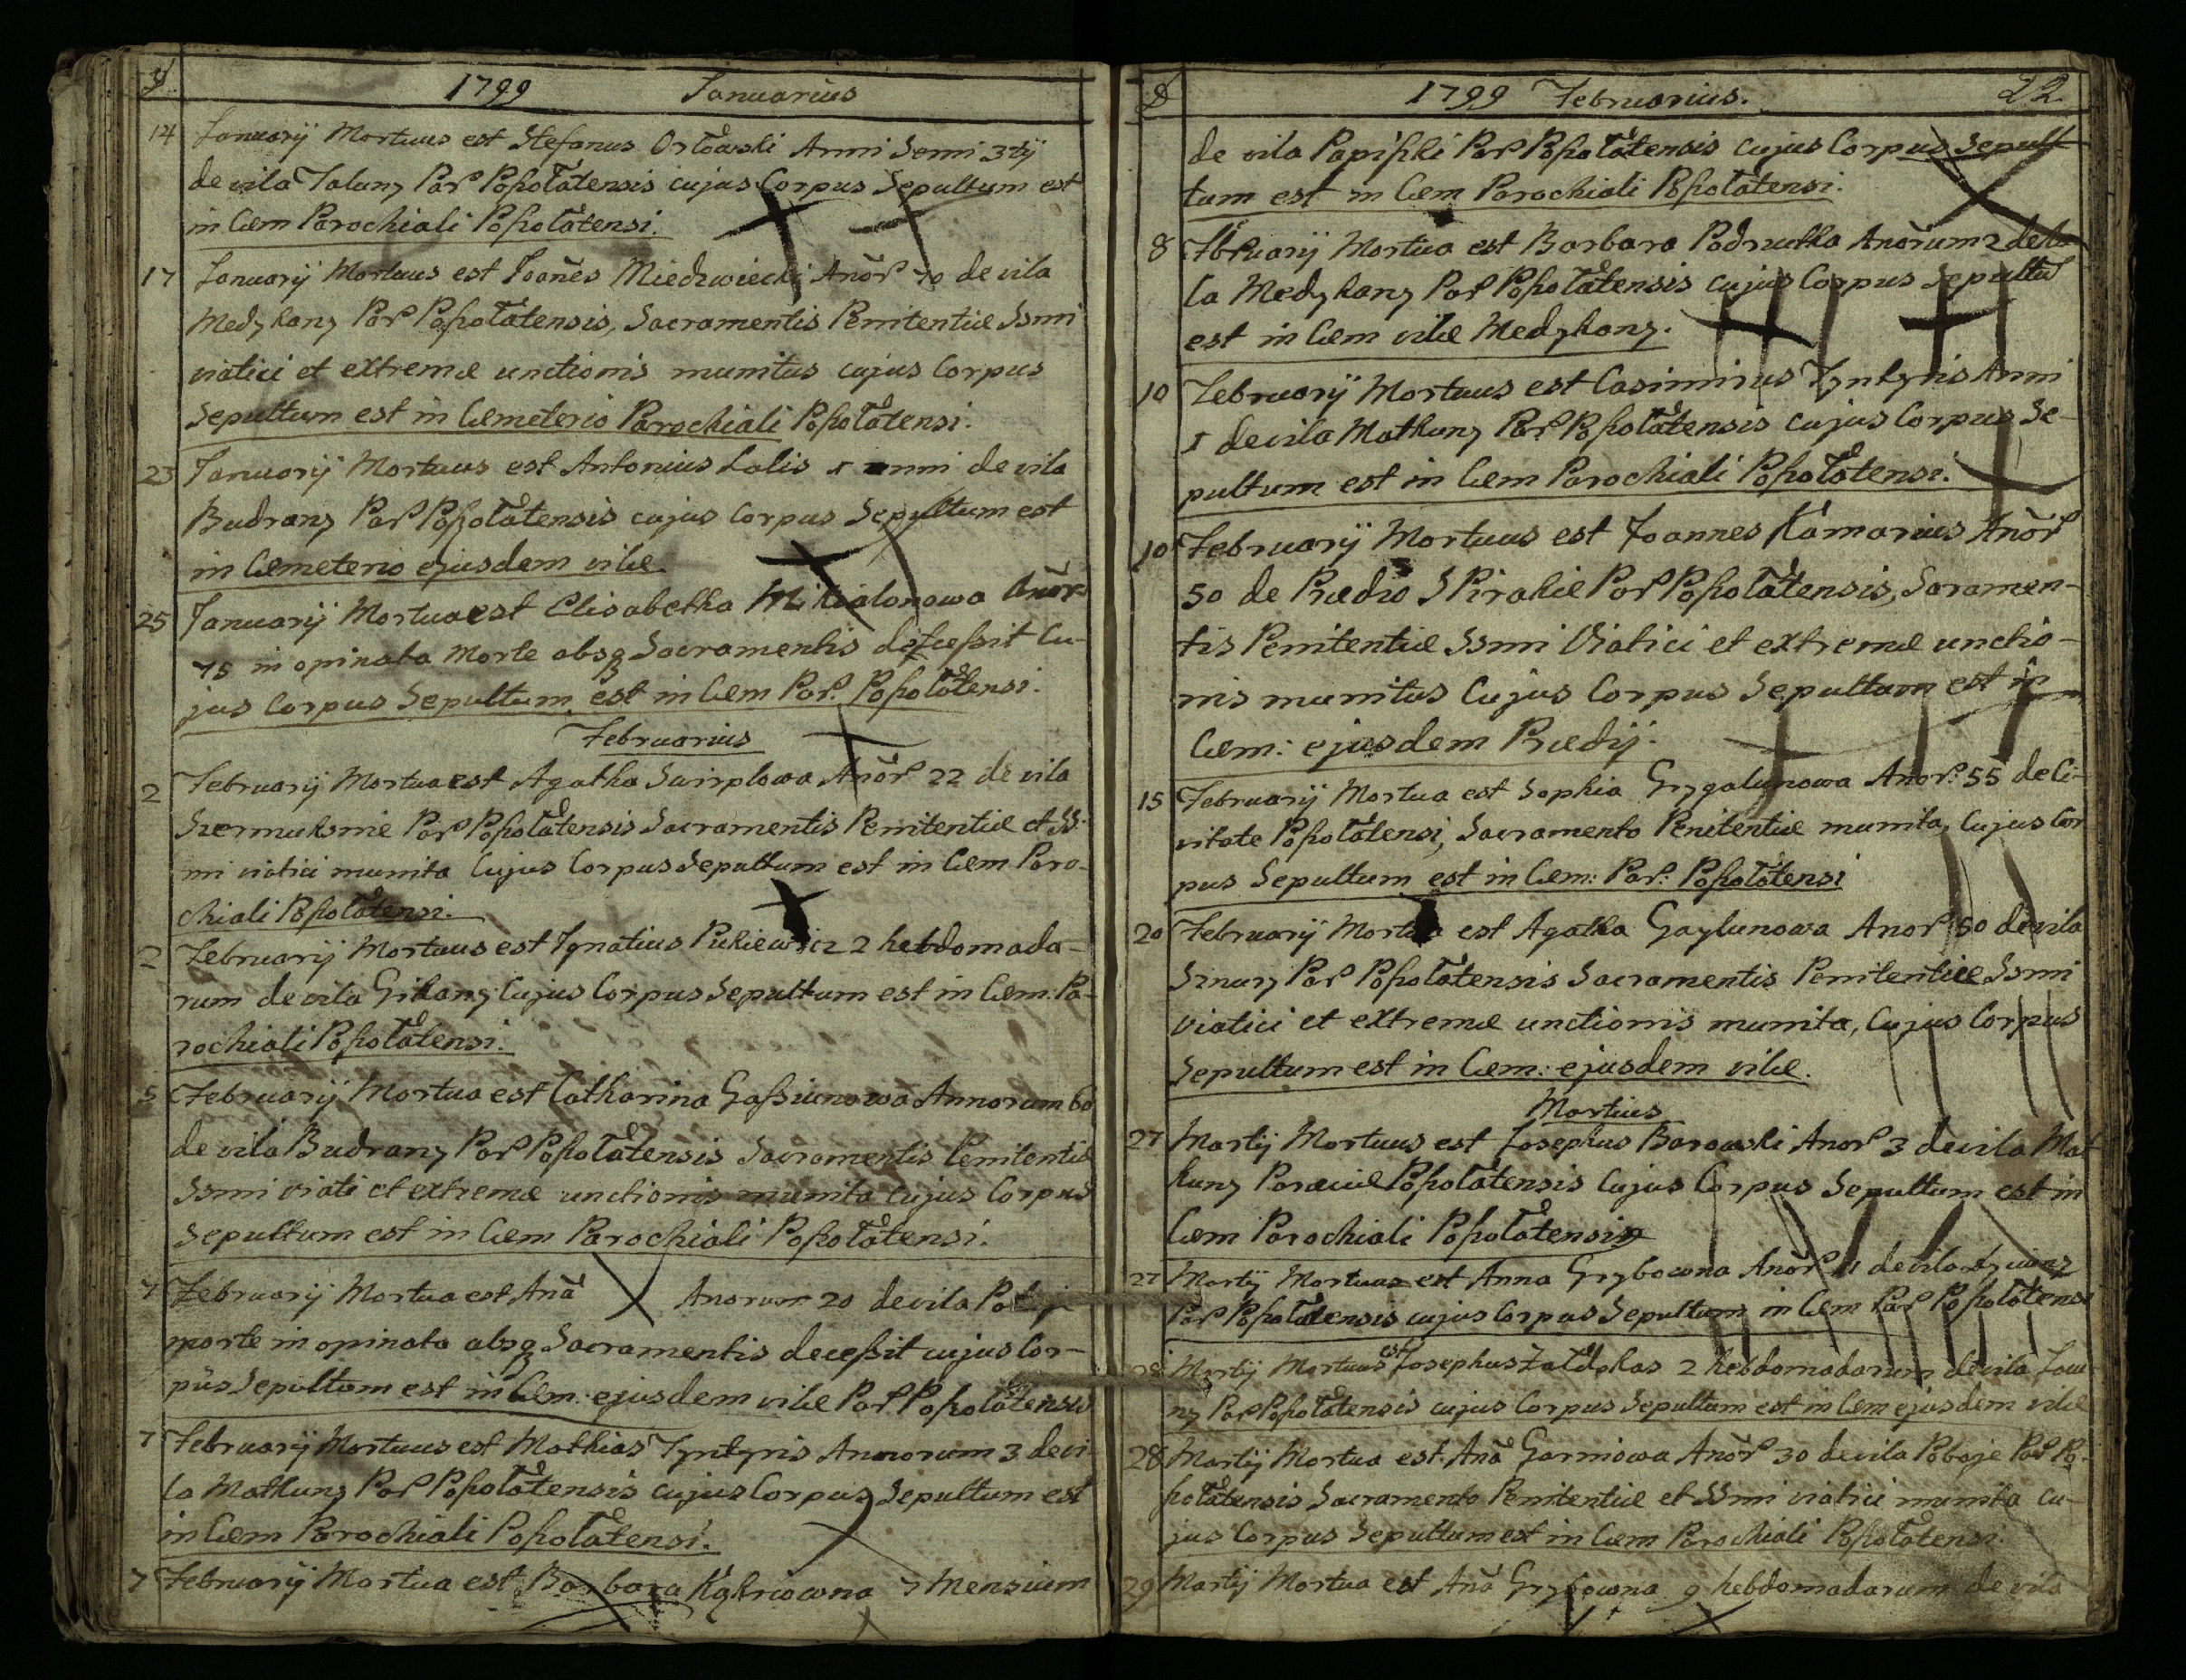 1799 Januarius
14 Januarij Mortuus est Stefanus Orłowski Anni Semi 3tij
de vila Toluny Par Poszołatensis cujus Corpus Sepultum est
in Cæm Parochiali Poszołatensi.
17 Januarij Mortuus est Joañes Miedzwiecki Anõr 70 de vila
Medykany Par Poszołatensis, Sacramentis Penitentiæ Ssmi
viatici et extremæ unctionis munitus cujus Corpus
Sepultum est in Cæmeterio Parochiali Poszołatensi.
23 Januarij Mortuus est Antonius Lalis 1 anni de vila
Budrany Par Poszołatensis cujus Corpus Sepultum est
in Cæmeterio ejusdem vilæ
25 Januarij Mortua est Elisabetha Mikialonowa Anõr
75 in opinata Morte absq Sacramentis decessit Cu-
jus Corpus Sepultum est in Cæm Par. Poszołatensi.
Februarius
2 Februarij Mortua est Agatha Swirplowa Anõr 22 de vila
Szermuksznie Par Poszołatensis Sacramentis Penitentiæ et SS-
mi viatici munita Cujus Corpus Sepultum est in Cæm Paro-
chiali Poszołatensi.
2 Februarij Mortuus est Ignatius Pukiewicz 2 hebdomada-
rum de vila Gikany Cujus Corpus Sepultum est in Cæm: Pa-
rochiali Poszołatensi.
5 Februarij Mortua est Catharina Gassiunowa Annorum 60
de vila Budrany Par Poszołatensis Sacramentis Penitentiæ
Ssmi viati et extremæ unctionis munita Cujus Corpus
Sepultum est in Cæm Parochiali Poszołatensi.
7 Februarij Mortua est Anã Anorum 20 de vila
morte in opinata absq Sacramentis decessit cujus Cor-
pus Sepultum est in Cæm: ejusdem vilæ Par Poszołatensis
7 Februarij Mortuus est Mathias Tyntyris Annorum 3 de vi
la Matkuny Par Poszołatensis cujus Corpus Sepultum est
in Cæm Parochiali Poszołatensi.
7 Februarij Mortua est Barbara 7 Mensium
1799 Februarius. 22
de vila Papiszki Par Poszołatensis cujus Corpus Sepult
tum est in Cæm Parochiali Poszołatensi.
8 Februarij Mortua est Barbara Anõrum 2 de vi
la Medykany Par Poszołatensis cujus Corpus Sepultũ
est in Cæm vilæ Medykany.
10 Februarij Mortuus est Casimirus Tyntyris Anni
1 de vila Matkuny Par Poszołatensis cujus Corpus Se-
pultum est in Cæm Parochiali Poszołatensi.
10 Februarij Mortuus est Joannes Kamarius Anõr
50 de Prædio Spirakie Par Poszołatensis, Sacramen-
tis Penitentiæ Ssmi Viatici et extremæ unctio-
nis munitus Cujus Corpus Sepultum est in
Cæm: ejusdem Prædij.
15 Februarij Mortua est Sophia Grygalunowa Anor. 55 de Ci-
vitate Poszołatensi, Sacramento Penitentiæ munita, Cujus Cor
pus Sepultum est in Cæm: Par: Poszołatensi
20 Februarij Mortua est Agatha Gaylunowa Anor 50 de vila
Sznury Par Poszołatensis Sacramentis Penitentiæ Ssmi
Viatici et extremæ unctionis munita, Cujus Corpus
Sepultum est in Cæm: ejusdem vilæ.
Martius
27 Martij Mortuus est Josephus Barowski Anor 3 de vila Mat
kuny Paræciæ Poszołatensis Cujus Corpus Sepultum est in
Cæm Parochiali Poszołatensi
27 Martij Mortuus est Anna Grybowna Anõr 11 de vila
Par Poszołatensis cujus Corpus Sepultum in Cæm Par Poszołatensi
28 Martij Mortuus est Josephus 2 hebdomadarum de vila Jau
ny Par Poszołatensis cujus Corpus Sepultum est in Cæm ejusdem vilæ
28 Martij Mortua est Anã Garniowa Anõr 30 de vila Poboje Par Po-
szołatensis Sacramento Penitentiæ et SSmi viatici munita cu-
jus Corpus Sepultum est in Cæm Parochiali Poszołatensi.
29 Martij Mortua est Anã Grybowna 9 hebdomadarum de vila